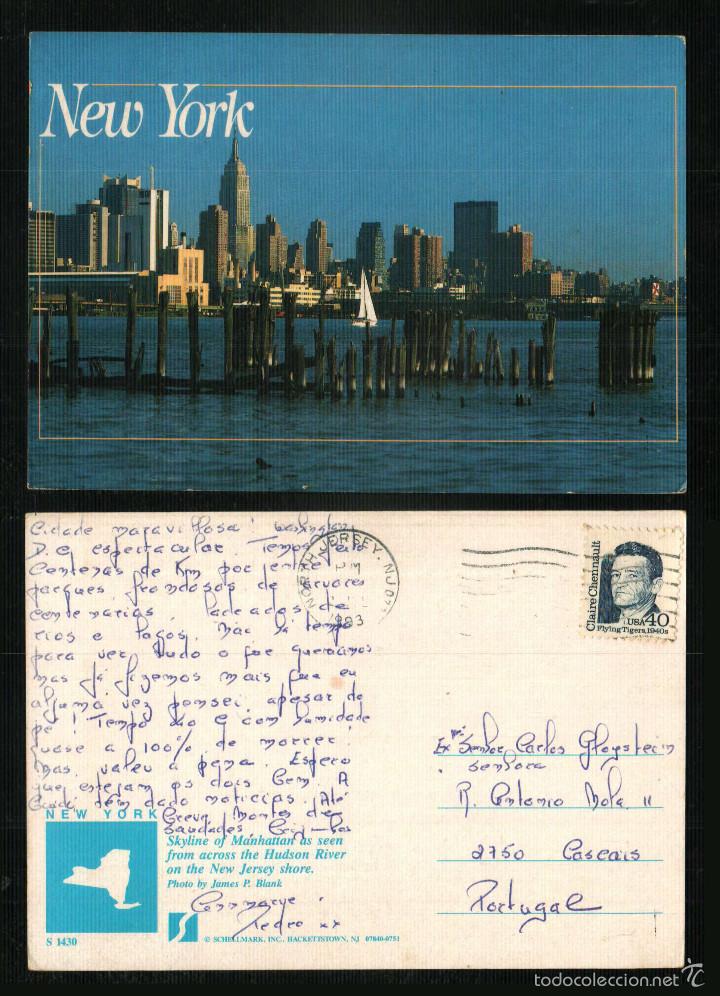 New York
Cidade maravilhosa! Washington
D.C. espectacular. Temos feito
Centenas de Km por entre
parques frondosos de árvores
centenárias, ladeados de
rios e lagos. Não há tempo
para ver tudo o que queríamos
mas já fizemos mais que eu
alguma vez pensei, apesar do
pé! Tempo tão e com humidade
quase a 100% de morrer.
Mas valeu a pena. Espero
que estejam os dois bem. A
tem dado notícias. Até
breve. Montes de
Saudades. Beijinhos
NORTH JERSEY, NJ 07
PM
1993
Claire Chennault
USA 40
Flying Tigers, 1940s
Exmo. Senhor Carlos Gloystein
Senhora
R. António Mola 11
2750 Cascais
Portugal
NEW YORK
Skyline of Manhattan as seen
from across the Hudson River
on the New Jersey shore.
Photo by James P. Blank
Pedro xx
© SCHELLMARK, INC., HACKETTSTOWN, NJ 07840-0751
S 1430
todocoleccion.net